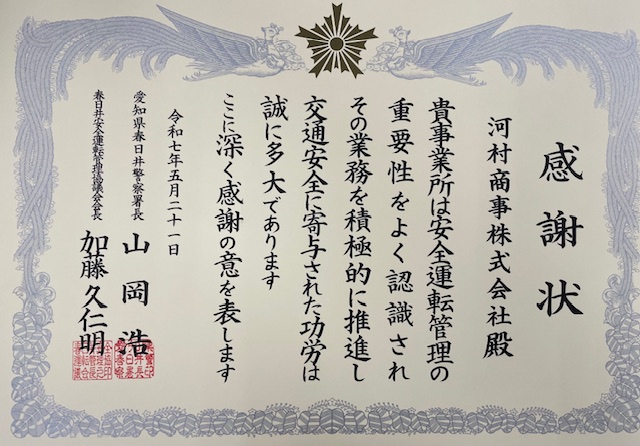 感謝状
河村商事株式会社殿
貴事業所は安全運転管理の
重要性をよく認識され
その業務を積極的に推進し
交通安全に寄与された功労は
誠に多大であります
ここに深く感謝の意を表します
令和七年五月二十一日
愛知県春日井警察署長
山岡浩
春日井安全運転管理協議会会長
加藤久仁明